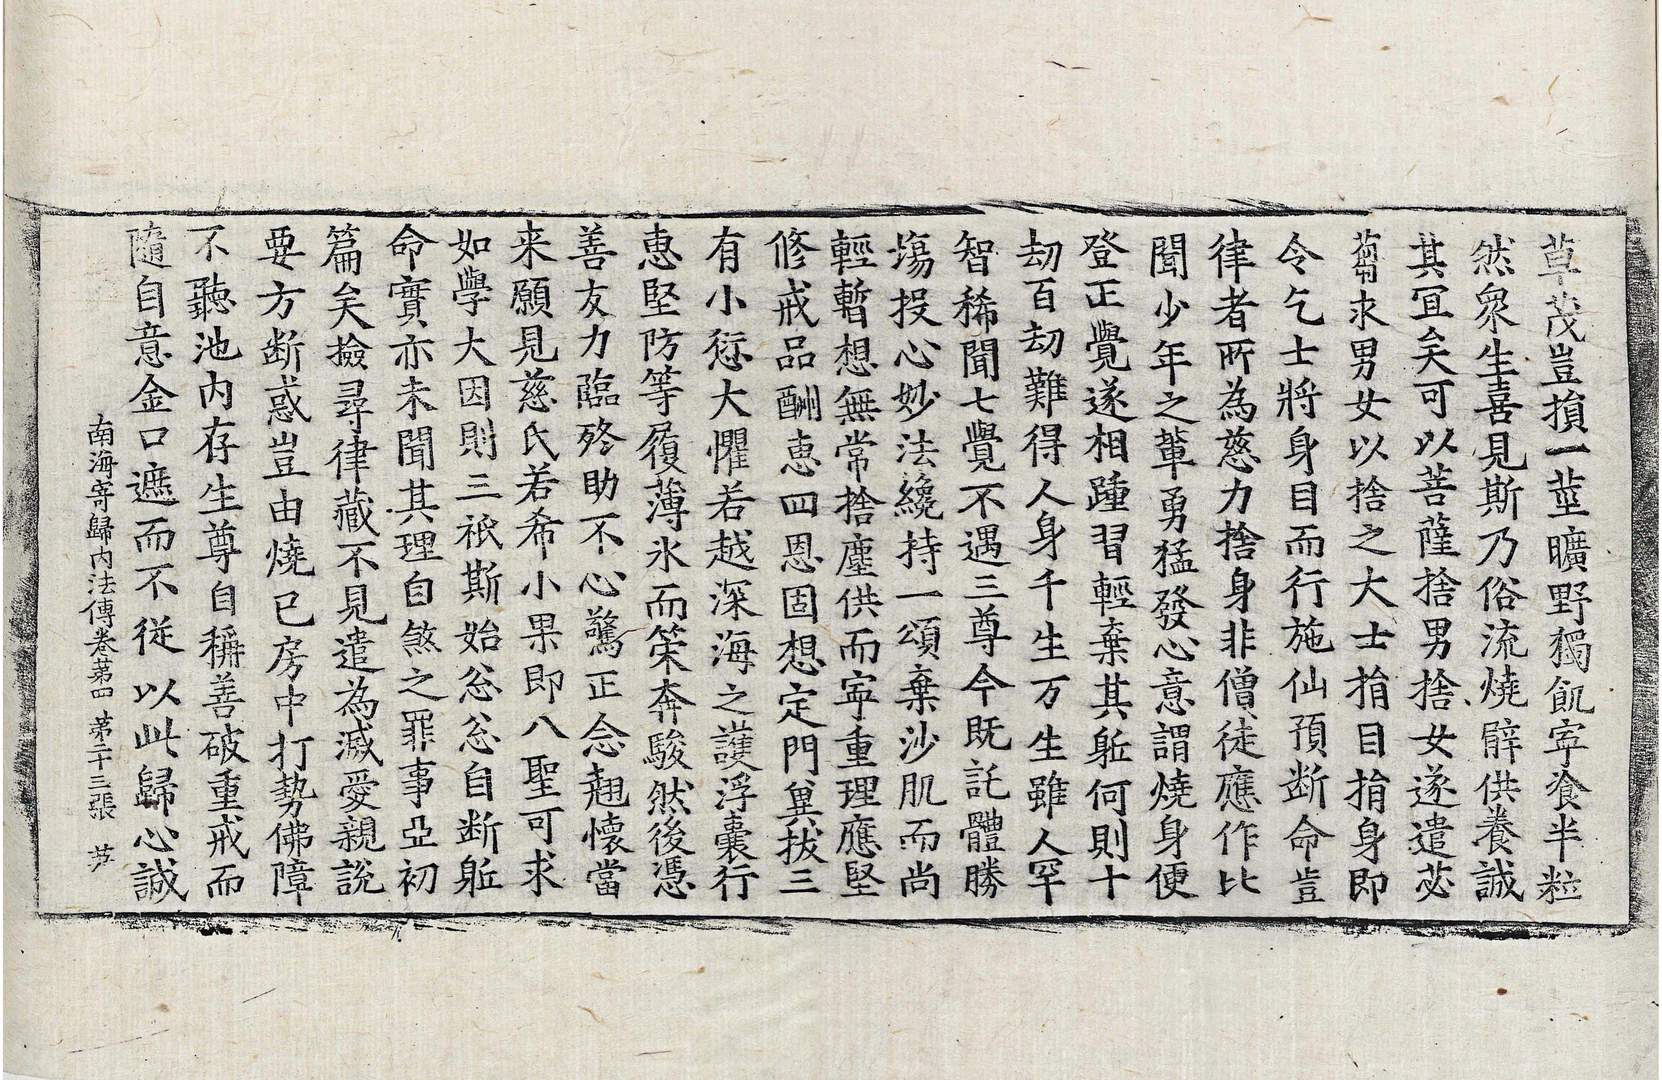 草茂豈損一莖曠野獨飢寜飡半粒
然衆生喜見斯乃俗流燒臂供養誠
其冝矣可以菩薩捨男捨女遂遣苾
蒭求男女以捨之大士捐目捐身即
令乞士將身目而行施仙預断命豈
律者所為慈力捨身非僧徒應作比
聞少年之軰勇猛發心意謂燒身便
登正覺遂相踵習輕棄其軀何則十
劫百劫難得人身千生万生雖人罕
智稀聞七覺不遇三尊今既託體勝
塲投心妙法纔持一頌棄沙肌而尚
輕暫想無常捨塵供而寧重理應堅
修戒品酬恵四恩固想定門兾拔三
有小愆大懼若越深海之護浮囊行
恵堅防等履薄氷而筞奔駿然後憑
善友力臨終助不心驚正念翹懷當
来願見慈氏若希小果即八聖可求
如學大因則三祇斯始忩忩自断軀
命實亦未聞其理自煞之罪事亞初
篇矣撿尋律藏不見遣為滅愛親說
要方断惑豈由燒己房中打勢佛障
不聽池内存生尊自稱善破重戒而
隨自意金口遮而不従以此歸心誠
南海寄歸内法傳卷苐四 第二十三張 𦬆